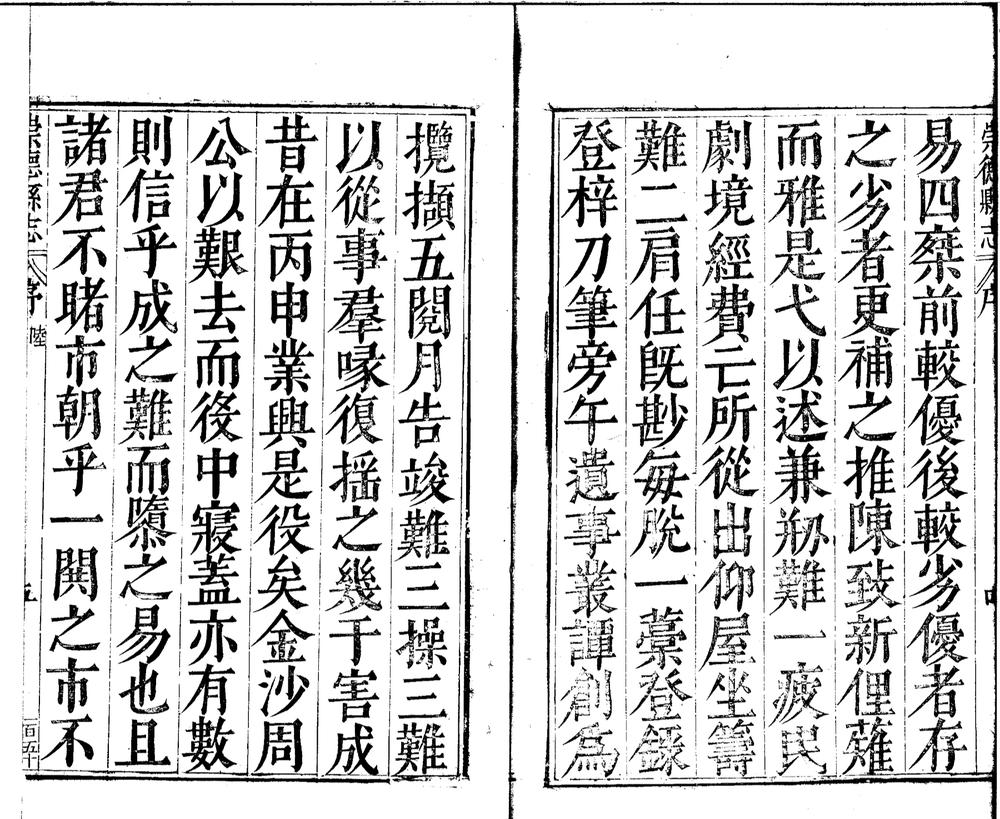 崇德縣志 序
易四桀前較優後較劣優者存
之劣者更補之推陳致新俚薙
而雅是弋以述兼刱難一疲民
劇境經費亡所從出仰屋坐籌
難二肩任既尠每脫一藁登錄
登梓刀筆旁午遺事叢譚創爲
攬擷五閱月告竣難三操三難
以從事羣喙復摇之幾于害成
昔在丙申業興是役矣金沙周
公以艱去而後中寢蓋亦有數
則信乎成之難而隳之易也且
諸君不睹市朝乎一閧之市不
崇德縣志 序 陸 五